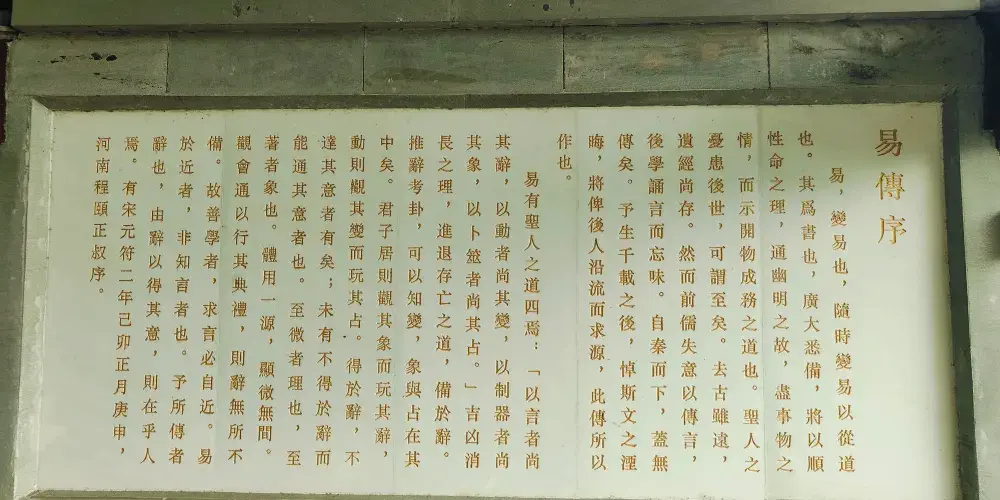 易傳序
易，變易也，隨時變易以從道
也。其爲書也，廣大悉備，將以順
性命之理，通幽明之故，盡事物之
情，而示開物成務之道也。聖人之
憂患後世，可謂至矣。去古雖遠，
遺經尚存。然而前儒失意以傳言，
後學誦言而忘味。自秦而下，蓋無
傳矣。予生千載之後，悼斯文之湮
晦，將俾後人沿流而求源，此傳所以
作也。
易有聖人之道四焉：「以言者尚
其辭，以動者尚其變，以制器者尚
其象，以卜筮者尚其占。」吉凶消
長之理，進退存亡之道，備於辭。
推辭考卦，可以知變，象與占在其
中矣。君子居則觀其象而玩其辭，
動則觀其變而玩其占。得於辭，不
達其意者有矣；未有不得於辭而
能通其意者也。至微者理也，至
著者象也。體用一源，顯微無間。
觀會通以行其典禮，則辭無所不
備。故善學者，求言必自近。易
於近者，非知言者也。予所傳者
辭也，由辭以得其意，則在乎人
焉。有宋元符二年己卯正月庚申，
河南程頤正叔序。